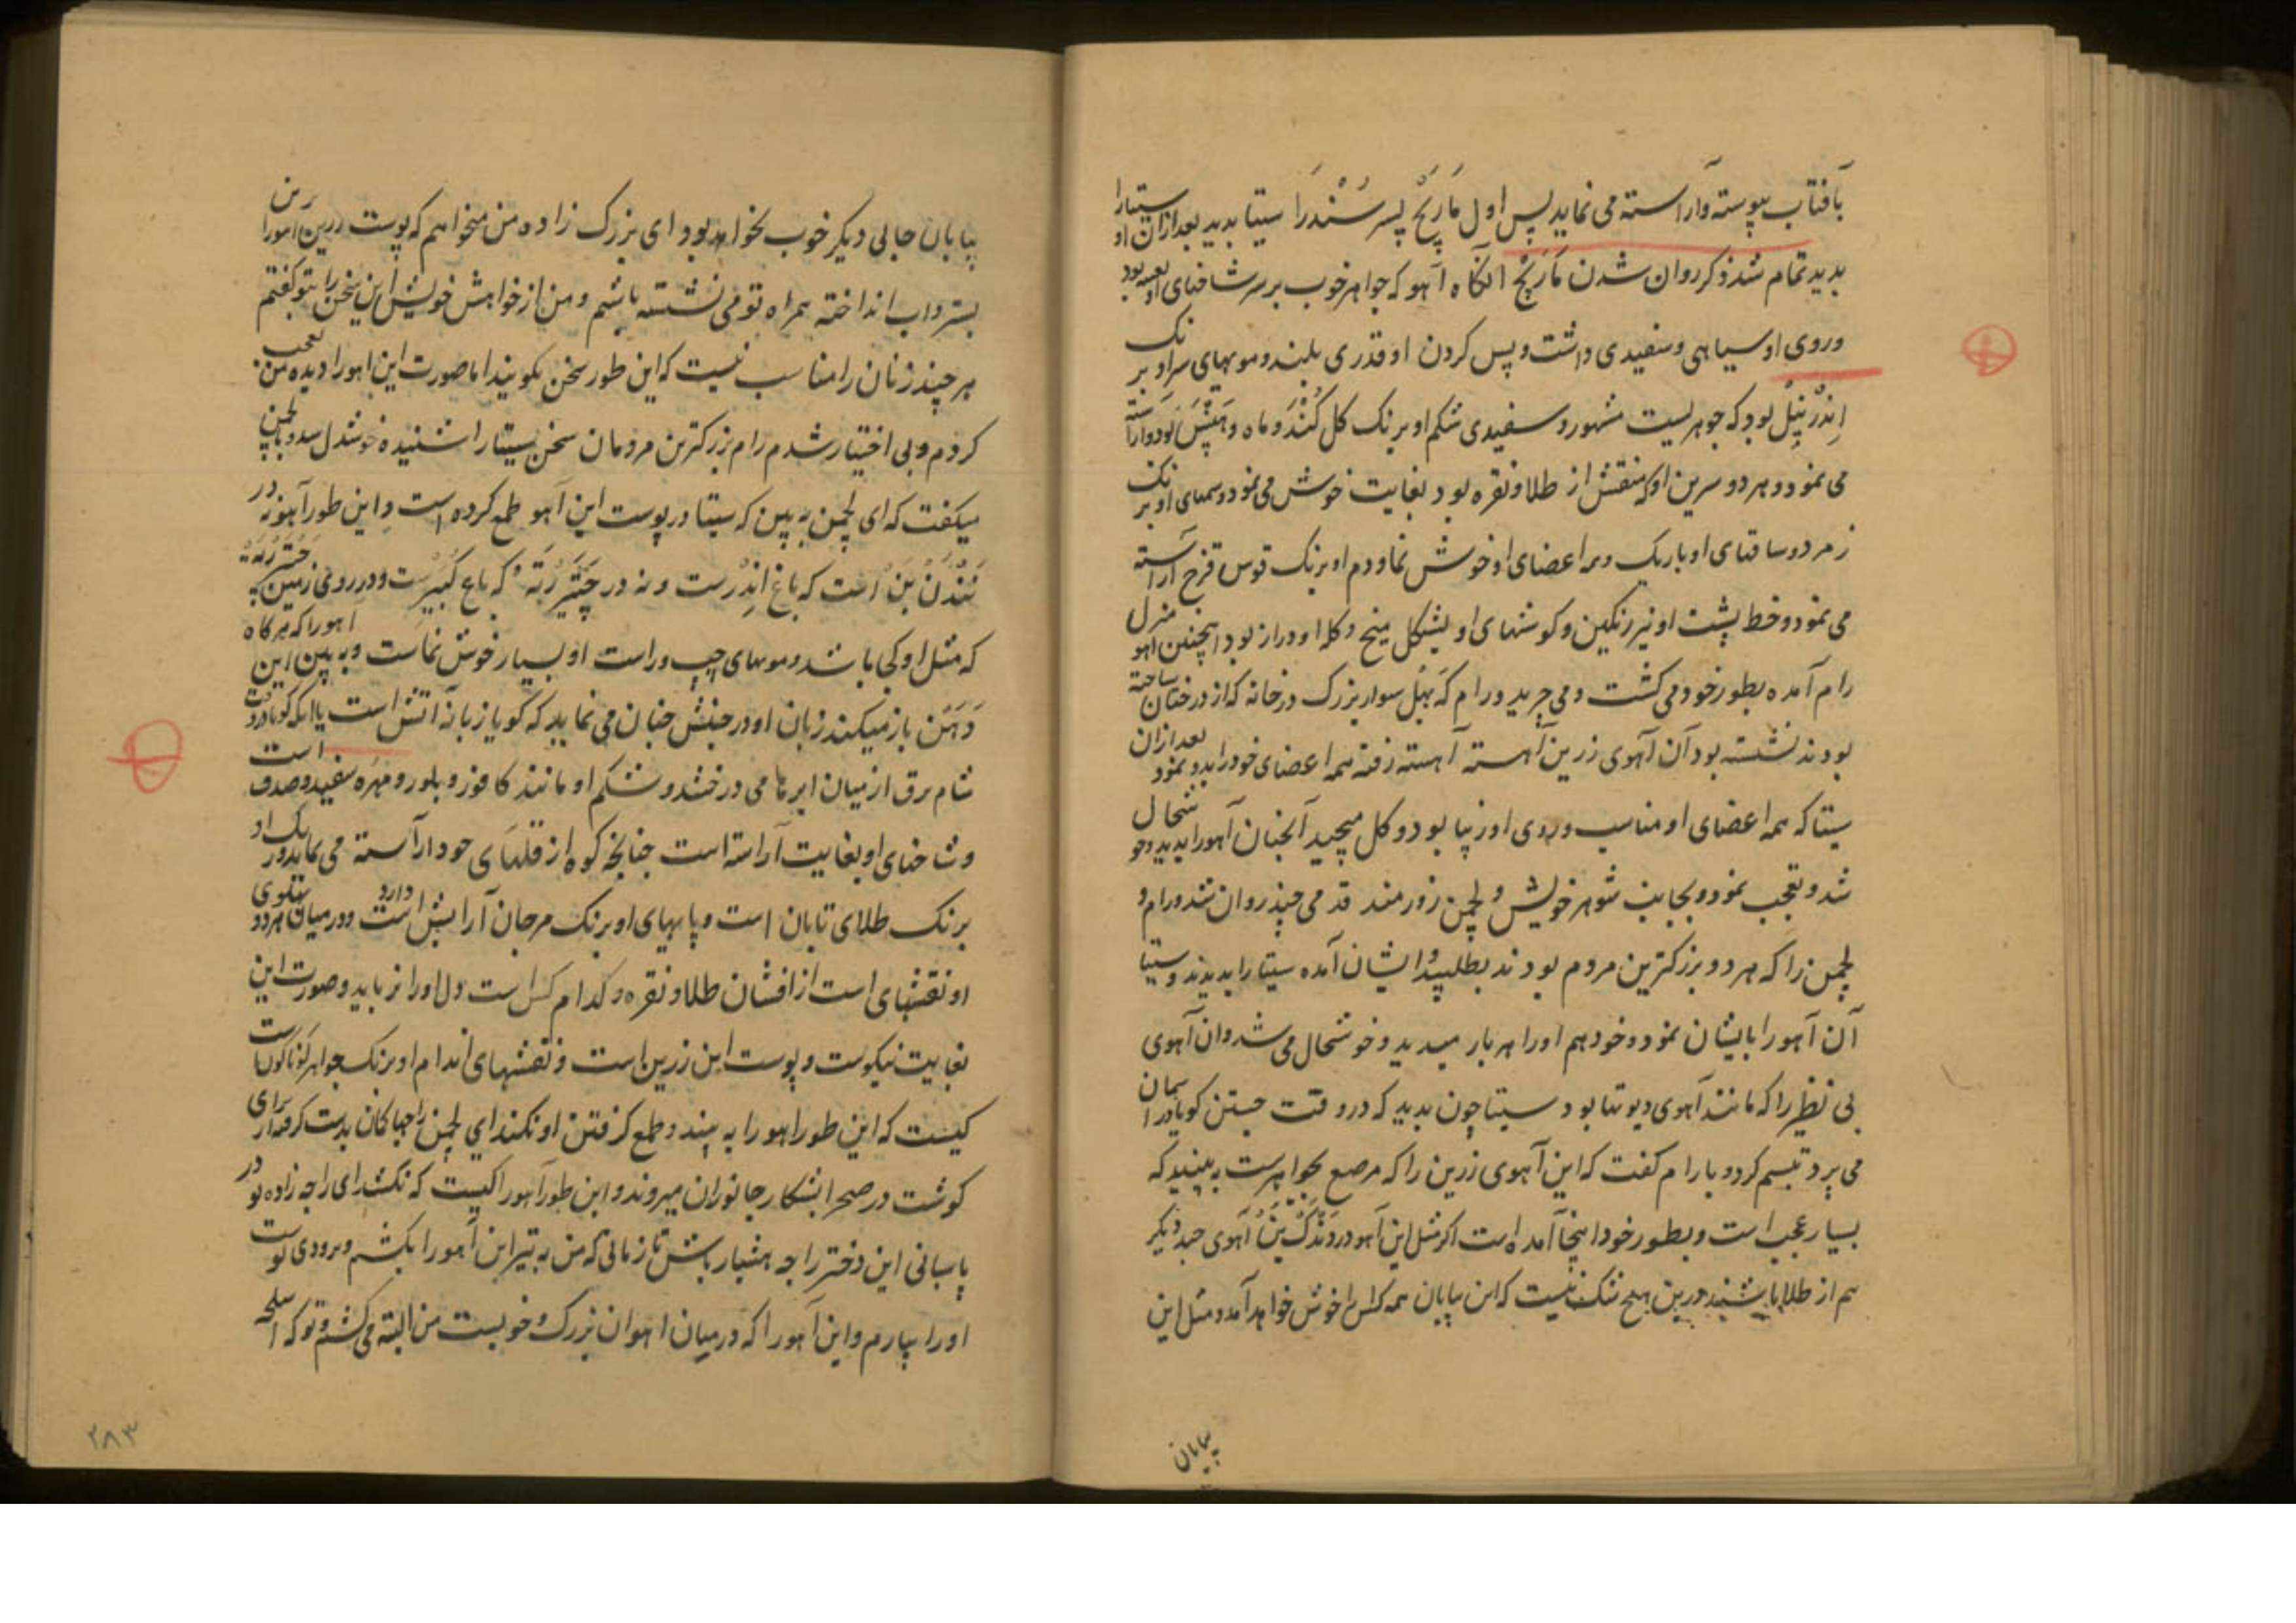 بآفتاب پیوسته و آراسته می نماید پس اول مَارِیْچ پسر سُنْدَرَا سیتا بدید بعد ازان او سیتارا
بدید تمام شد ذکر روان شدن مَارِیْچ انکاه آهو که جواهر خوب بر سر شاخهای او تعبیه بود
و روی او سیاهی و سفیدی داشت و پس کردن او قدری بلند و مویهای سر او بر نک
اِنْدْرنِیْل بود که جوهریست مشهور و سفیدی شکم او برنک کل کُنْد و ماه و بود و آراسته
می نمود و هر دو سرین او که منقش از طلا و نقره بود بغایت خوش می نمود و سمهای او بر نک
زمرد و ساقهای او باریک و همه اعضای او خوش نما و دم او برنک قوس قزح آراسته
می نمود و خط پشت او نیز رنکین و کوشهای او بشکل میخ و کله او دراز بود اینچنین آهو منزل
رام آمده بطور خود می کشت و می چرید و رام که بَهْل سوار بزرک در خانه که از درختان ساخته
بودند نشسته بود آن آهوی زرین آهسته آهسته رفته همه اعضای خود را بدو نمود بعد ازان
سیتا که همه اعضای او مناسب و روی او زیبا بود و کل میچید آنچنان آهو را بدید و خوشحال
شد و تعجب نمود و بجانب شوهر خویش و لچمن زورمند قدمی چند روان شد و رام و
لچمن را که هر دو بزرکترین مردم بودند بطلبید و ایشان آمده سیتا را بدیدند و سیتا
آن آهو را بایشان نمود و خود هم او را هر بار میدید و خوشحال می شد و ان آهوی
بی نظیر را که مانند آهوی دیوتها بود سیتا چون بدید که در وقت جستن کویا در آسمان
می پرد تبسم کرد و با رام کفت که این آهوی زرین را که مرصع بجواهرست به بینید که
بسیار عجب است و بطور خود اینجا آمده است اکر مثل این آهو در دَنْدَکْ بَنْ آهوی چند دیکر
هم از طلا باشند درین هیچ شک نیست که این بیابان همه کس را خوش خواهد آمد و مثل این
بیابان
بیابان جای دیکر خوب نخواهد بود ای بزرک زاده من میخواهم که پوست زرین این آهو را
بستر و اب انداخته همراه تو می نشسته باشم و من از خواهش خویش این سخن را بتو کفتم
هر چند زنان را مناسب نیست که این طور سخن بکویند اما صورت این اهو را دیده من تعجب
کردم و بی اختیار شدم رام بزرکترین مردمان سخن سیتا را شنیده خوشدل شد و با لچمن
میکفت که ای لچمن به بین که سیتا در پوست این آهو طمع کرده است و این طور آهو نه در
نَنْدَنْ بَنْ است که باغ اِنْدْرست و نه در چَتِّرْرَتَهْ که باغ کُبیرست و در روی زمین
که مثل او کجا باشد و مویهای چپ و راست او بسیار خوش نماست و به بین این آهو را که هر کاه
دَهَن باز میکند زبان او در جنبش چنان می نماید که کویا زبانه آتش است یا آنکه کویا در وقت
شام برق از میان ابرها می درخشد و شکم او مانند کافور و بلور و مهره سفید و صدف است
و شاخهای او بغایت آراسته است چنانچه کوه از قلهای خود آراسته می نماید و رنک او
برنک طلای تابان است و پایهای او برنک مرجان آرایش دارد و در میان هر دو پهلوی
او نقشهای است از افشان طلا و نقره و کدام کس است دل او را نرباید و صورت این
بغایت نیکوست و پوست این زرین است و نقشهای اندام او برنک جواهر کوناکون است
کیست که این طور اهو را به بیند و طمع کرفتن او نکند ای لچمن راجها کمان بدست کرفته برای
کوشت در صحرا بشکار جانوران میروند و این طور آهو را کیست که نکشد ای راجه زاده تو در
پاسبانی این دختر راجه هشیار باش تا زمانی که من به تیر این آهو را بکشم و بزودی پوست
او را بیارم و این آهو را که در میان اهوان بزرک و خوبست من البته می کشم و تو که اسلحه
۲۸۳